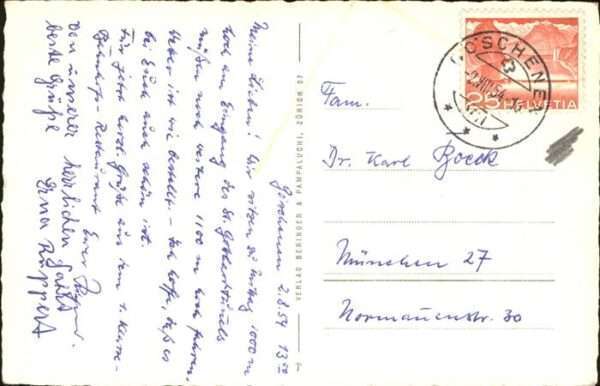 Göschenen 2.8.54 13⁰⁰
Meine Lieben! Wir sitzen zu Mittag 1000 m
hoch am Eingang des St. Gotthardtunnels
müssen noch weitere 1100 m hoch fahren.
Wetter ist wie bestellt – Ich hoffe, daß es
bei Euch auch schön ist.
Für jetzt herzl. Grüße aus dem 1. Klass-
Bahnhofs-Restaurant Euer
Von unserer herrlichen Fahrt
beste Grüße Erna Ruppert
VERLAG BERINGER & PAMPALUCHI, ZÜRICH 57
GÖSCHENEN
2.VIII.54
25 HELVETIA
Fam.
Dr. Karl Boeck
München 27
Normannenstr. 30